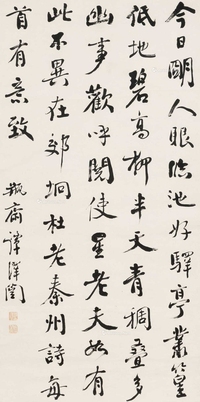 今日明人眼臨池好驛亭叢篁
低地碧高柳半天青稠疊多
幽事歡呼閱使星老夫如有
此不異在郊坰杜老秦州詩每
首有意致
瓶齋譚澤闓